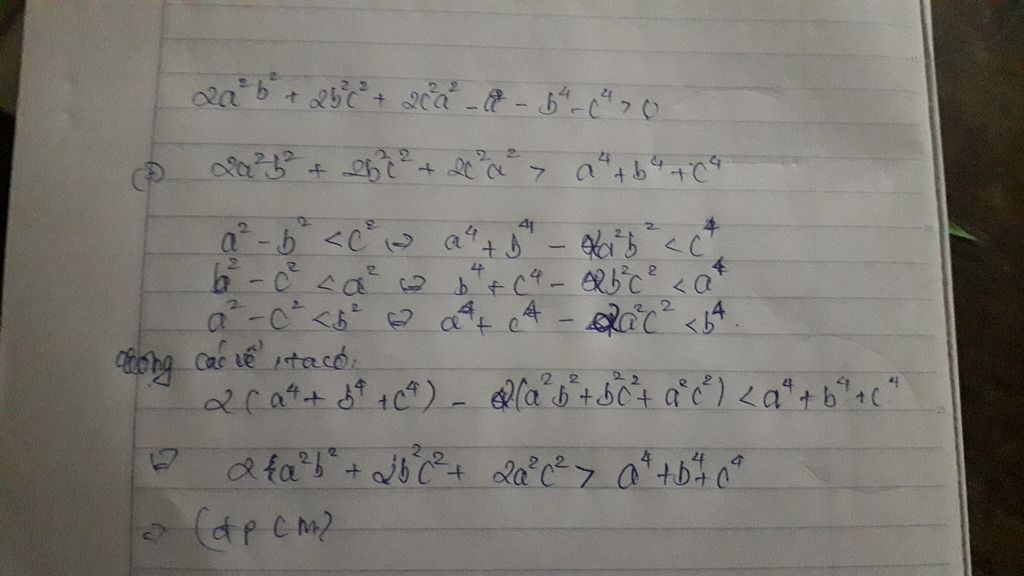 2a²b² + 2b²c² + 2c²a² - a⁴ - b⁴ - c⁴ > 0
⇔ 2a²b² + 2b²c² + 2c²a² > a⁴ + b⁴ + c⁴
a² - b² < c² ⇔ a⁴ + b⁴ - 2a²b² < c⁴
b² - c² < a² ⇔ b⁴ + c⁴ - 2b²c² < a⁴
a² - c² < b² ⇔ a⁴ + c⁴ - 2a²c² < b⁴.
cộng các vế, ta có:
2(a⁴ + b⁴ + c⁴) - 2(a²b² + b²c² + a²c²) < a⁴ + b⁴ + c⁴
⇔ 2a²b² + 2b²c² + 2a²c² > a⁴ + b⁴ + c⁴
⇒ (đpcm)